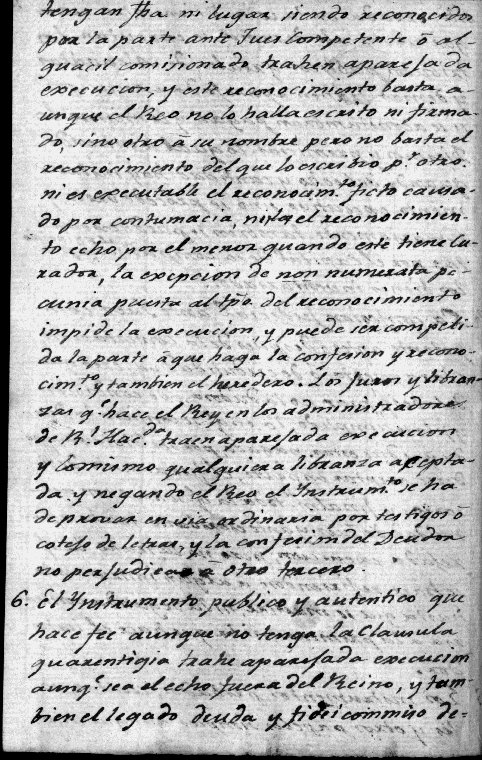 tengan fha. ni lugar siendo reconocidos
por la parte ante Jues Competente ō al-
guacil comisionado trahen aparejada
execucion, y este reconocimiento basta a-
unque el Reo no lo halla escrito ni firma-
do, sino otro ā su nombre pero no basta el
reconocimiento del que lo escribio pr. otro.
ni es executable el reconocimto. ficto causa-
do por contumacia, ni el reconocimien-
to echo por el menor quando este tiene Cu-
rador, la exepcion de non numerata pe-
cunia puesta al tpō. del reconocimiento
impide la execucion, y puede ser compeli-
da la parte ā que haga la confesion y recono-
cimto. y tambien el heredero. Los Juros y libran-
zas qe. hace el Rey en los administradores
de Rl. Hacda. traen aparejada execucion
y lo mismo qualquiera libranza acepta-
da. y negando el Reo el Instrumto. se ha
de provar en via ordinaria por testigos ō
cotejo de letras, y la confesion del Deudor
no perjudica ā otro tercero.
6. El Ynstrumento publico y autentico que
hace fee aunque no tenga la Clausula
quarentigia trahe aparejada execucion
aunqe. sea el echo fuera del Reino, y tam-
bien el legado deuda y fideicommiso de-